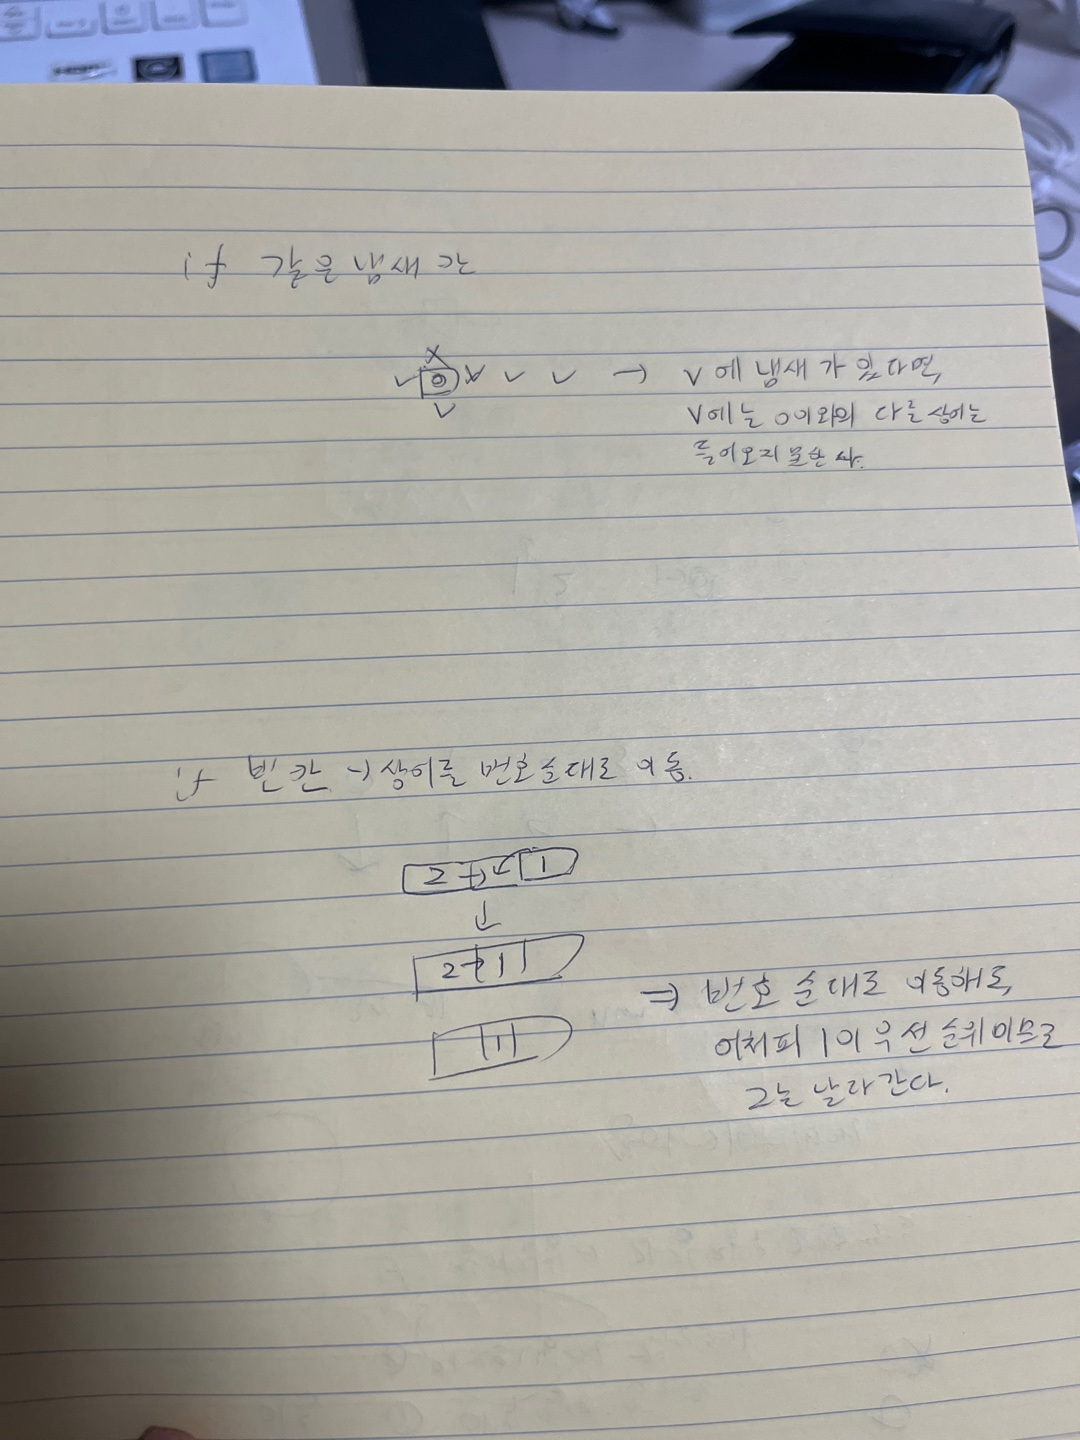 if 같은 냄새 칸
v에 냄새가 있다면,
v에는 0이외의 다른 상어는
들어오지 못한다.
if 빈칸 → 상어를 번호순대로 이동.
2 1
2 1
1
⇒ 번호 순대로 이동해도,
어차피 1이 우선순위이므로
2는 날라간다.